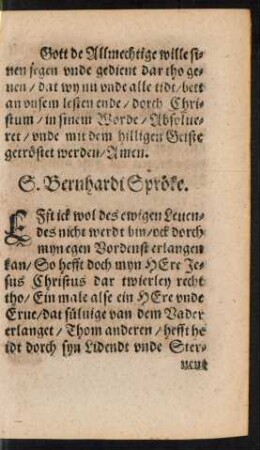 Gott de Allmechtige wille si-
nen segen vnde gedient dar tho ge-
uen / dat wy nu vnde alle tidt / bett
an vnsem lesten ende / dorch Chri-
stum / in sinem Worde / Absolue-
ret / vnde mit dem hilligen Geiste
getröstet werden / Amen.
S. Bernhardi Spröke.
EFft ick wol des ewigen Leuen-
des nicht werdt bin / ock dorch
myn egen Vordenst erlangen
kan / So hefft doch myn HEre Je-
sus Christus dar twierley recht
tho / Ein male alse ein HEre vnde
Erue / dat süluige van dem Vader
erlanget / Thom anderen / hefft he
idt dorch syn Lidendt vnde Ster-
uent